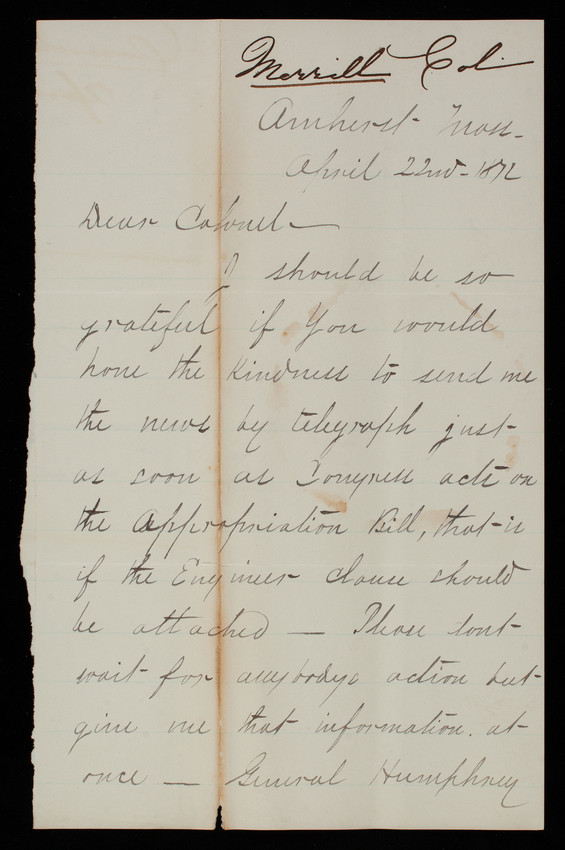 Merrill Col.
Amherst Mass.
April 22nd 1872
Dear Colonel—
I should be so
grateful if you would
have the kindness to send me
the news by telegraph just
as soon as Congress acts on
the Appropriation Bill, that is
if the Engineer clause should
be attached — Please dont
wait for anybodys action but
give me that information at
once — General Humphrey